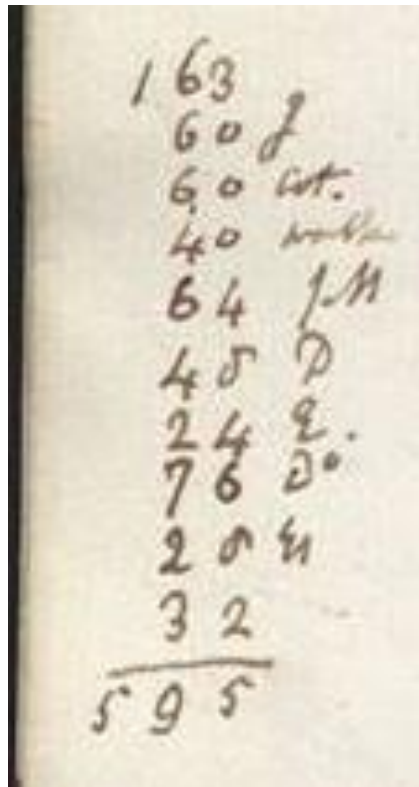 163
60 J
60 Cot.
40
64 J M
45 D
24 E.
76 Do
25
32
595